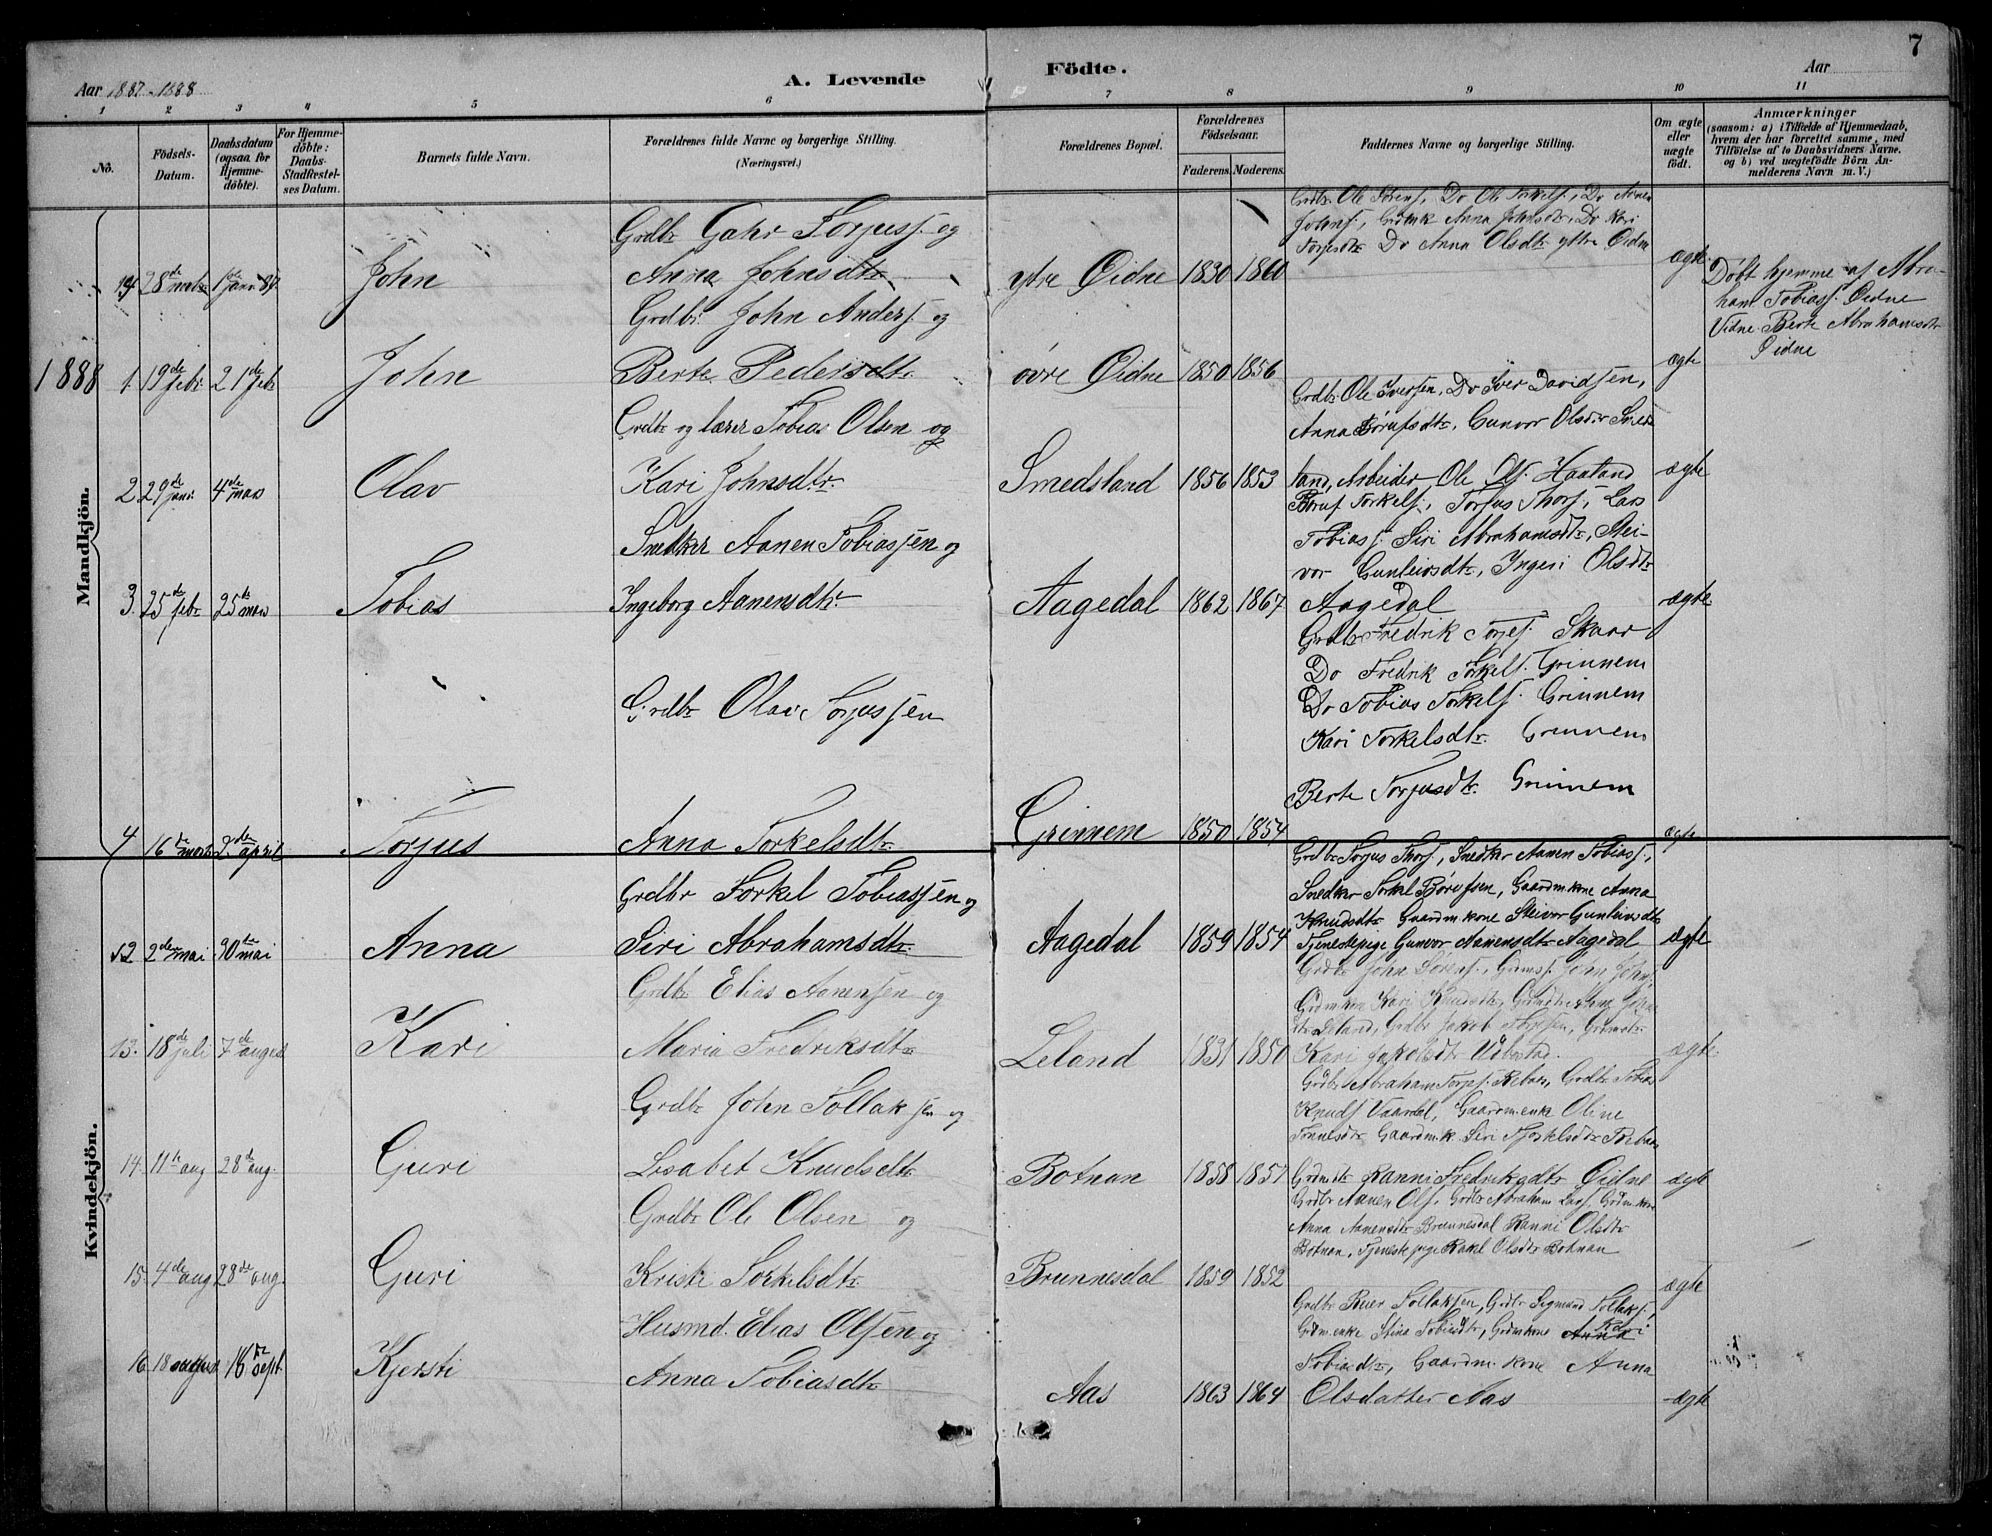 7
Aar 1887-1888
A. Levende
Födte.
Aar
1 2 3 4 5 6 7 8 9 10 11
No.
Födsels-
Datum.
Daabsdatum
(ogsaa for
Hjemme-
döbte).
For Hjemme-
döbte:
Daabs-
Stadfæstel-
ses Datum.
Barnets fulde Navn.
Forældrenes fulde Navne og borgerlige Stilling.
(Næringsvei.)
Forældrenes Bopæl.
Forældrenes
Födselsaar.
Faderens. Moderens.
Faddernes Navne og borgerlige Stilling.
Om ægte
eller
uægte
födt.
Anmærkninger
(saasom: a) i Tilfælde af Hjemmedaab,
hvem der har forrettet samme, med
Tilföielse af to Daabsvidners Navne.
og b) ved uægtefödte Börn An-
melderens Navn m. V.)
Mandkjön.
Grdbr Torjuss. og
28de 1de John
Anna Johnsdtr
ytre Øidne 1830 1860
Grdbr Ole Do Ole Torkels., Do
Anna Johnsdtr, Do Kari
Torjesdtr Do Anna Olsdtr yttre Øidne
ægte
Døbt hjemme af Abra-
ham Tobiass. Øidne
Vidne Berte Abrahamsdtr
Øidne
1888
1. 19de febr. 21de feb John
Grdbr. John Anders. og
Berte Pedersdtr
øvre Øidne 1850 1856
ægte
2 29de janr. 4de mars Olav
Grdbr og lærer Tobias Olsen og
Kari Johnsdtr.
Smedsland 1856 1853
Grdbr. Ole Iversen, Do Iver Davidsen,
Anna Børufsdtr, Gunvor Olsdtr Smeds
land, Arbeider Ole Ols. Haaland
ægte
3. 25de febr 25de mars Tobias
Snedker Aanen Tobiassen og
Ingeborg Aanensdtr.
Aagedal 1862 1867
Børuf Torkels., Torjus Thors., Lars
Tobiass. Siri Abrahamsdtr, Stei-
vor Gunleivsdtr, Ingeri Olsdtr
Aagedal
ægte
4 16de mars 2den april Torjus
Grdbr Olav Torjussen
Anna Torkelsdtr
Grinnem 1850 1854
Grdbr Fredrik Torjes. Skaar
Do Fredrik Torkels. Grinnem
Do Tobias Torkels. Grinnem
Kari Torkelsdtr. Grinnem
Berte Torjusdtr. Grinnem
ægte
Kvindekjön.
12 2den mai 20de mai Anna
Grdbr Torkel Tobiassen og
Siri Abrahamsdtr
Aagedal 1859 1854
Grdbr Torjus Thors., Snedker Aanen Tobiass.,
Snedker Torkel Børufsen, Gaardm.kone Anna
Knudsdtr Gaardm.kone Steivor Gunleivsdtr
Tjenestepige Gunvor Aanensdtr Aagedal
ægte
13. 18de juli 7de august Kari
Grdbr Elias Aanensen og
Maria Fredriksdtr
Leland 1831 1850
Grdbr John Sørens.,
Kari Knudsdtr,
Leland, Grdbr Jakob
Kari Jakobsdtr
ægte.
14. 11te aug 28de aug. Guri
Grdbr John Tollaksen og
Lisabet Knudsdtr
Botnan 1858 1857
Grdbr Abraham Torjes. Grdbr Tobias
Knuds Vaardal, Gaardm.enke Oline
Tønnesdtr Gaardm.k. Siri Tjerkelsdtr
Grdmdtr Ranni Fredriksdtr Øidne
ægte
15. 4de aug 28de aug. Guri
Grdbr Ole Olsen og
Kristi Torkelsdtr
Brunnesdal 1859 1852
Grdbr Aanen Ols., Grdbr Abraham Lars., Grdm.kone
Anna Aanensdtr Brunnesdal Ranni Olsdtr
Botnan, Tjenestepige Rakel Olsdtr Botnan
ægte
16. 18 august 16de sept. Kjersti
Husmd. Elias Olsen og
Anna Tobiasdtr
Aas 1863 1864
Grdbr Reier Tollaksen, Grdbr Sigmund Tollaks.,
Grdm.enke Stina Tobiasdtr, Grdm.kone Anna Kari
Tobiasdtr, Gaardm.kone Anna
Olsdatter Aas
ægte